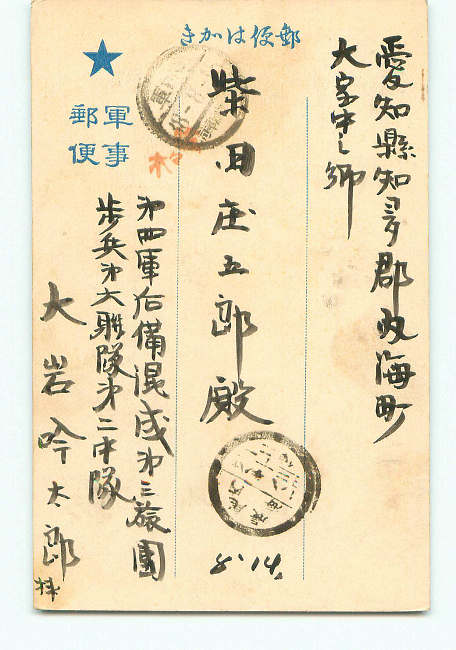 郵便はかき
愛知縣知多郡内海町
大字中之郷
柴田庄五郎殿
軍事
郵便
第四軍后備混成第三旅團
歩兵第六聯隊第二中隊
大岩吟太郎
8.14